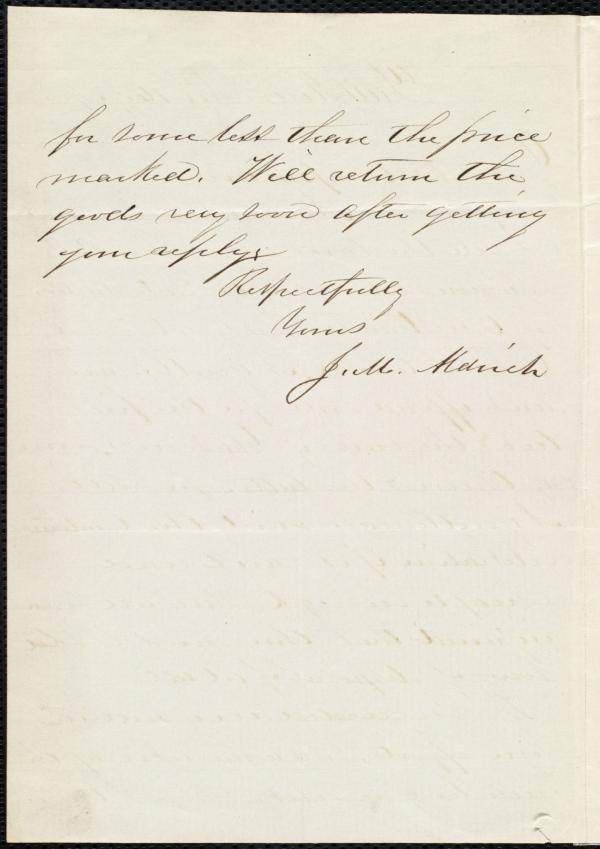 for some less than the price
marked. Will return the
goods very soon after getting
your reply.
Respectfully
Yours
J. M. Aldrich